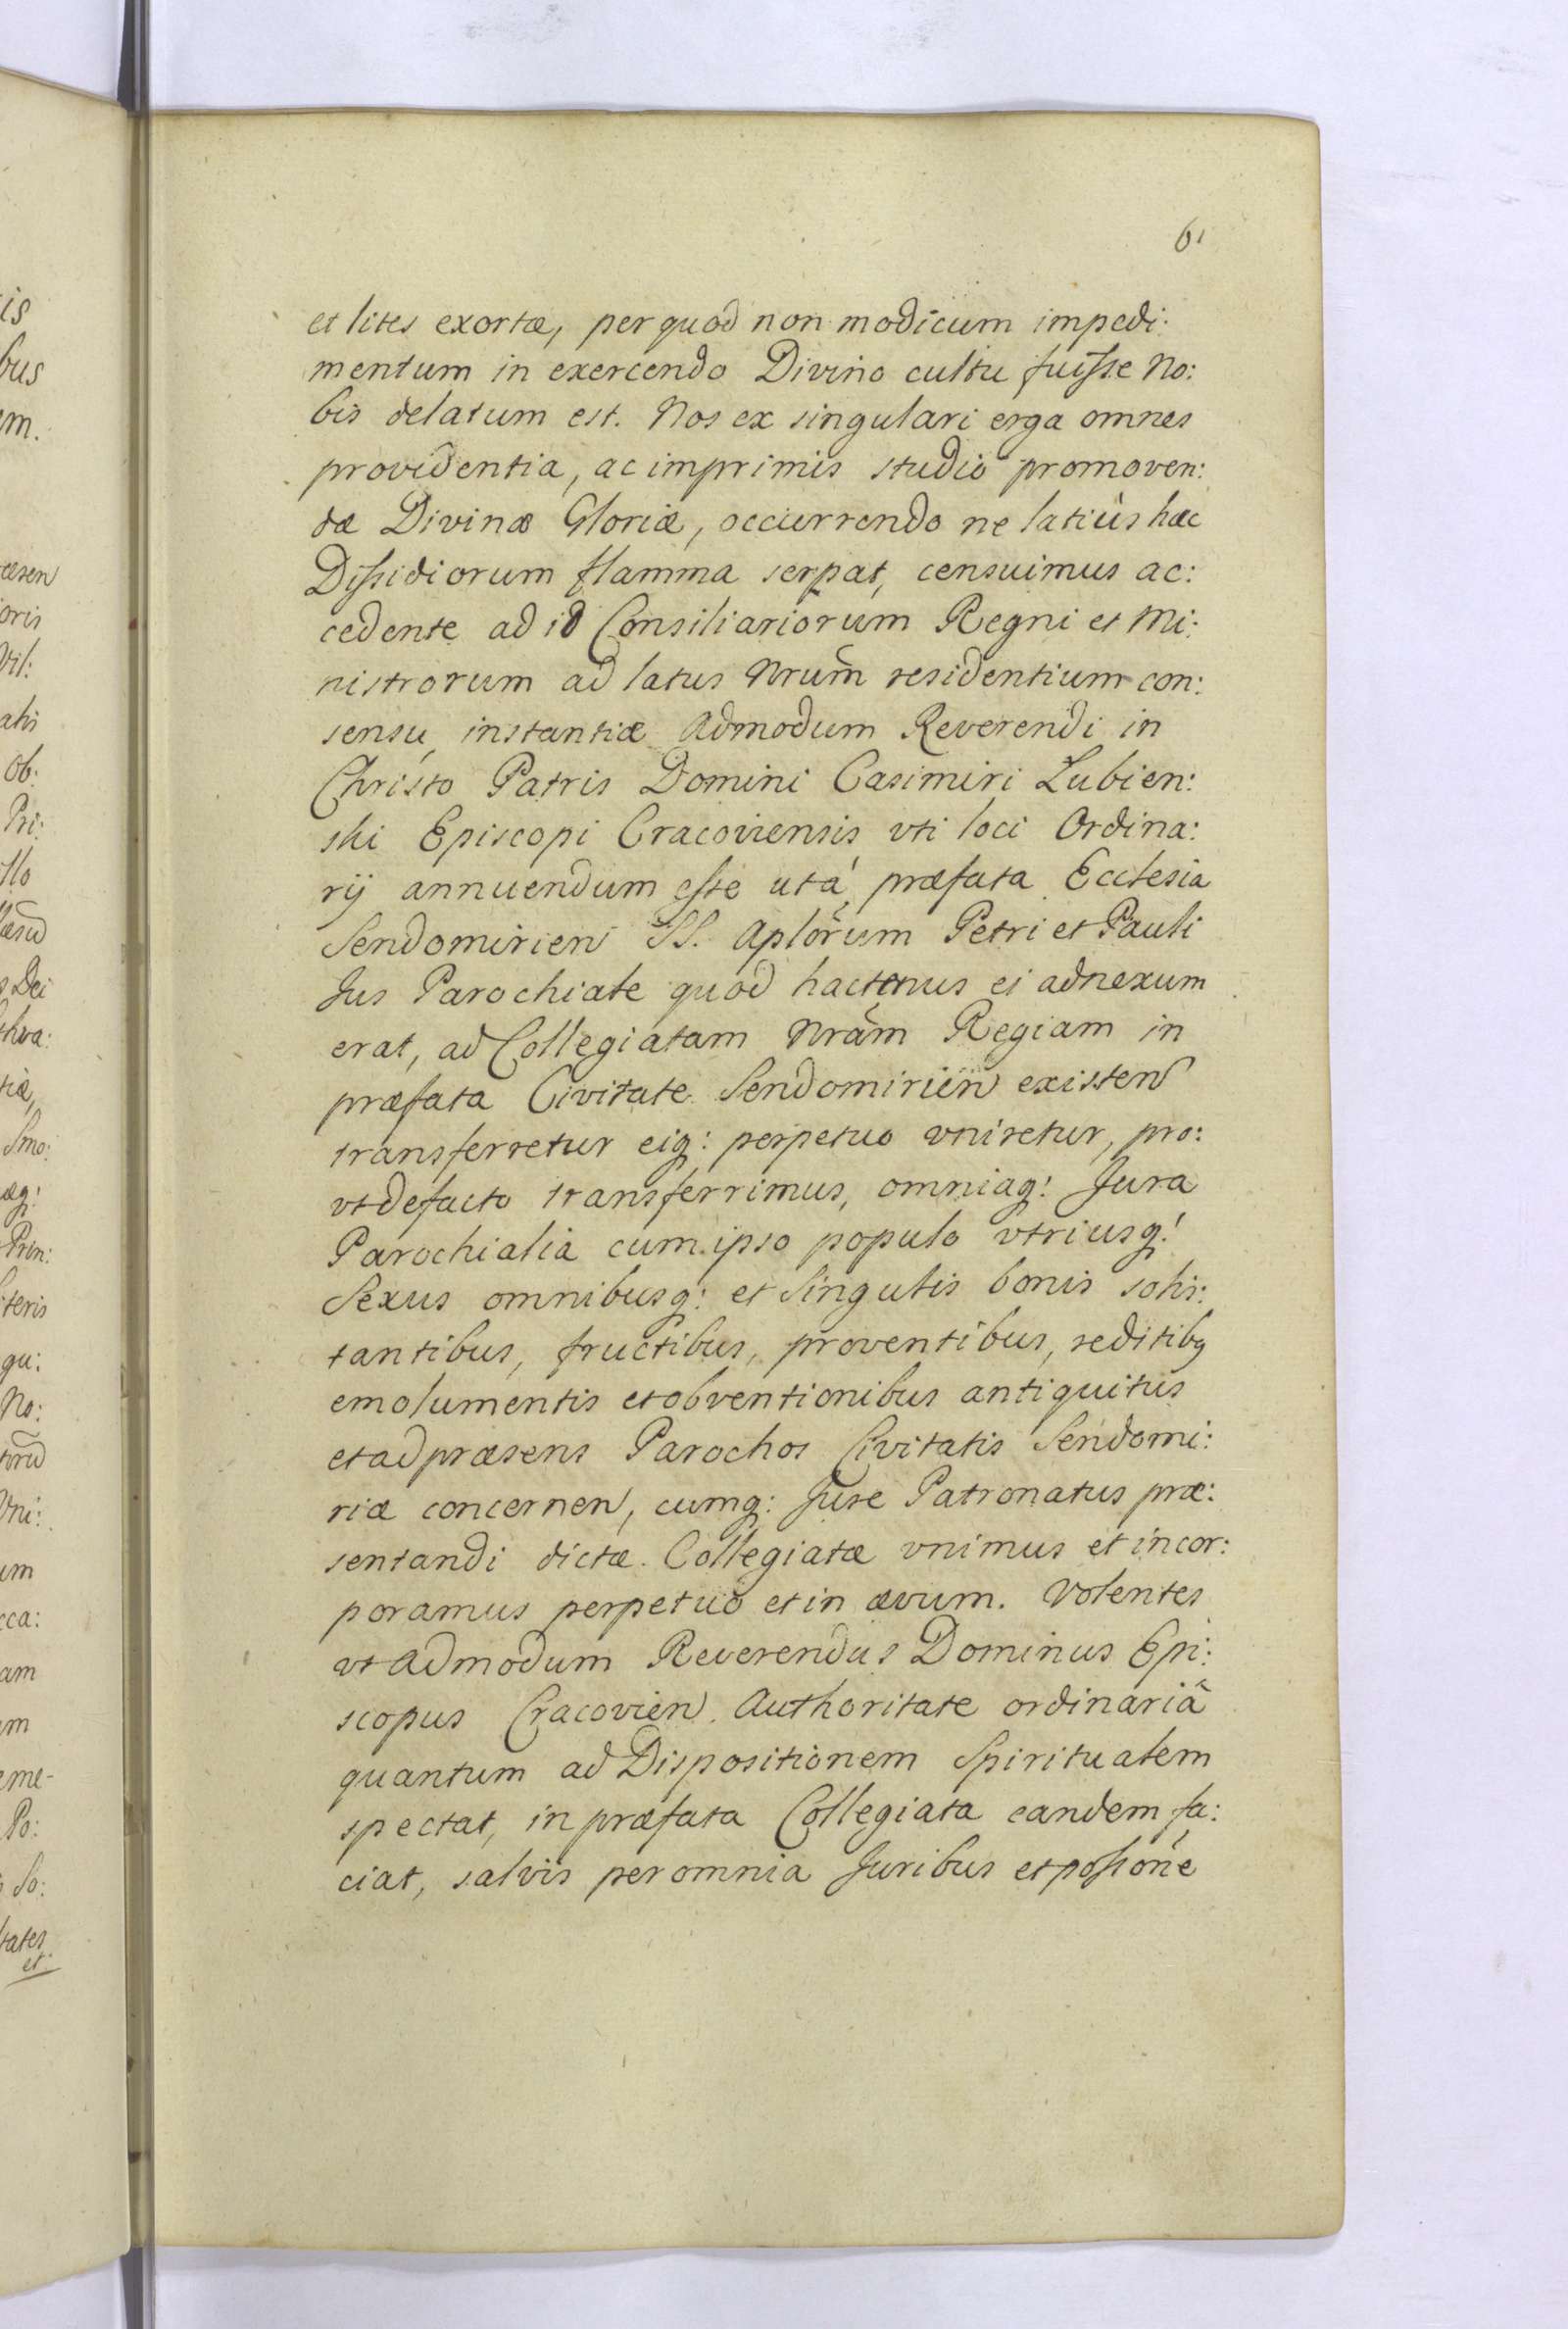 61
et lites exortæ, per quod non modicum impedi:
mentum in exercendo Divino cultu fuisse No:
bis delatum est. Nos ex singulari erga omnes
providentia, ac imprimis studio promoven:
dæ Divinæ Gloriæ, occurrendo ne latiùs hæc
Dissidiorum flamma serpat, censuimus ac:
cedente ad id Consiliariorum Regni et Mi:
nistrorum ad latus Nrum̃ residentium con:
sensu, instantiæ Admodum Reverendi in
Christo Patris Domini Casimiri Lubien:
ski Episcopi Cracoviensis vti loci Ordina:
rij annuendum esse ut á præfata Ecclesia
Sendomirien SS. Aplõrum Petri et Pauli
Jus Parochiale quod hactenus ei adnexum
erat, ad Collegiatam Nrãm Regiam in
præfata Civitate Sendomirien existen
transferretur eiq: perpetuo vniretur, pro:
vt defacto transferrimus, omniaq: Jura
Parochialia cum ipso populo vtriusq:
Sexus omnibusq: et Singulis bonis
tantibus, fructibus, proventibus, reditibq
emolumentis et obventionibus antiquitus
et ad præsens Parochos Civitatis Sendomi:
riæ concernen, cumq: Jure Patronatus præ:
sentandi dictæ Collegiatæ vnimus et incor:
poramus perpetuo et in ævum. Volentes
vt Admodum Reverendus Dominus Epi:
scopus Cracovien. Authoritate ordinariâ
quantum ad Dispositionem Spiritualem
spectat, in præfata Collegiata eandem fa:
ciat, salvis per omnia Juribus et possione